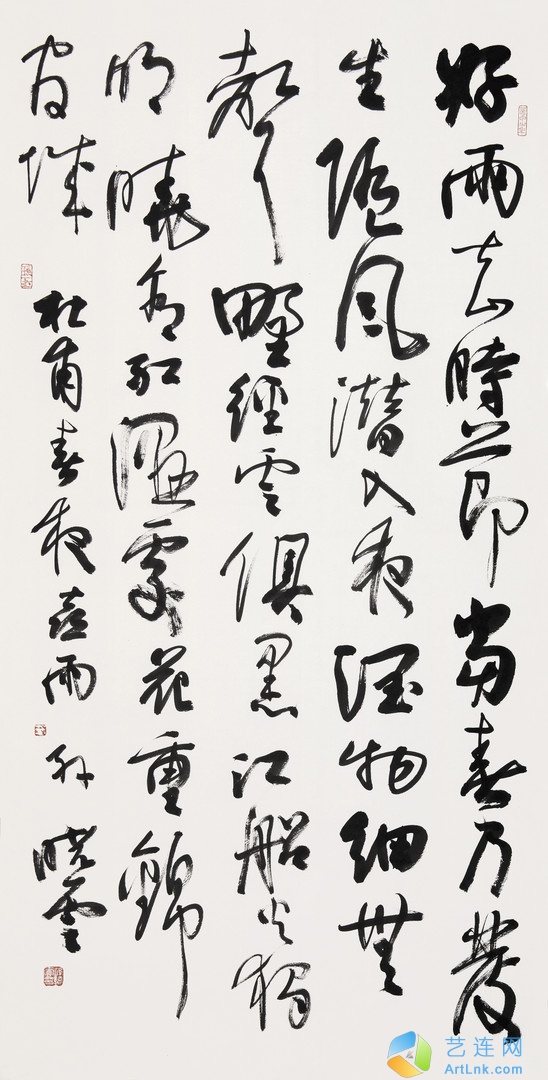 好雨知時節當春乃發
生隨風潛入夜潤物細無
聲野經雲俱黑江船火獨
明曉看紅濕處花重錦
官城
杜甫春夜喜雨 孫曉雲
艺连网
ArtLnk.com